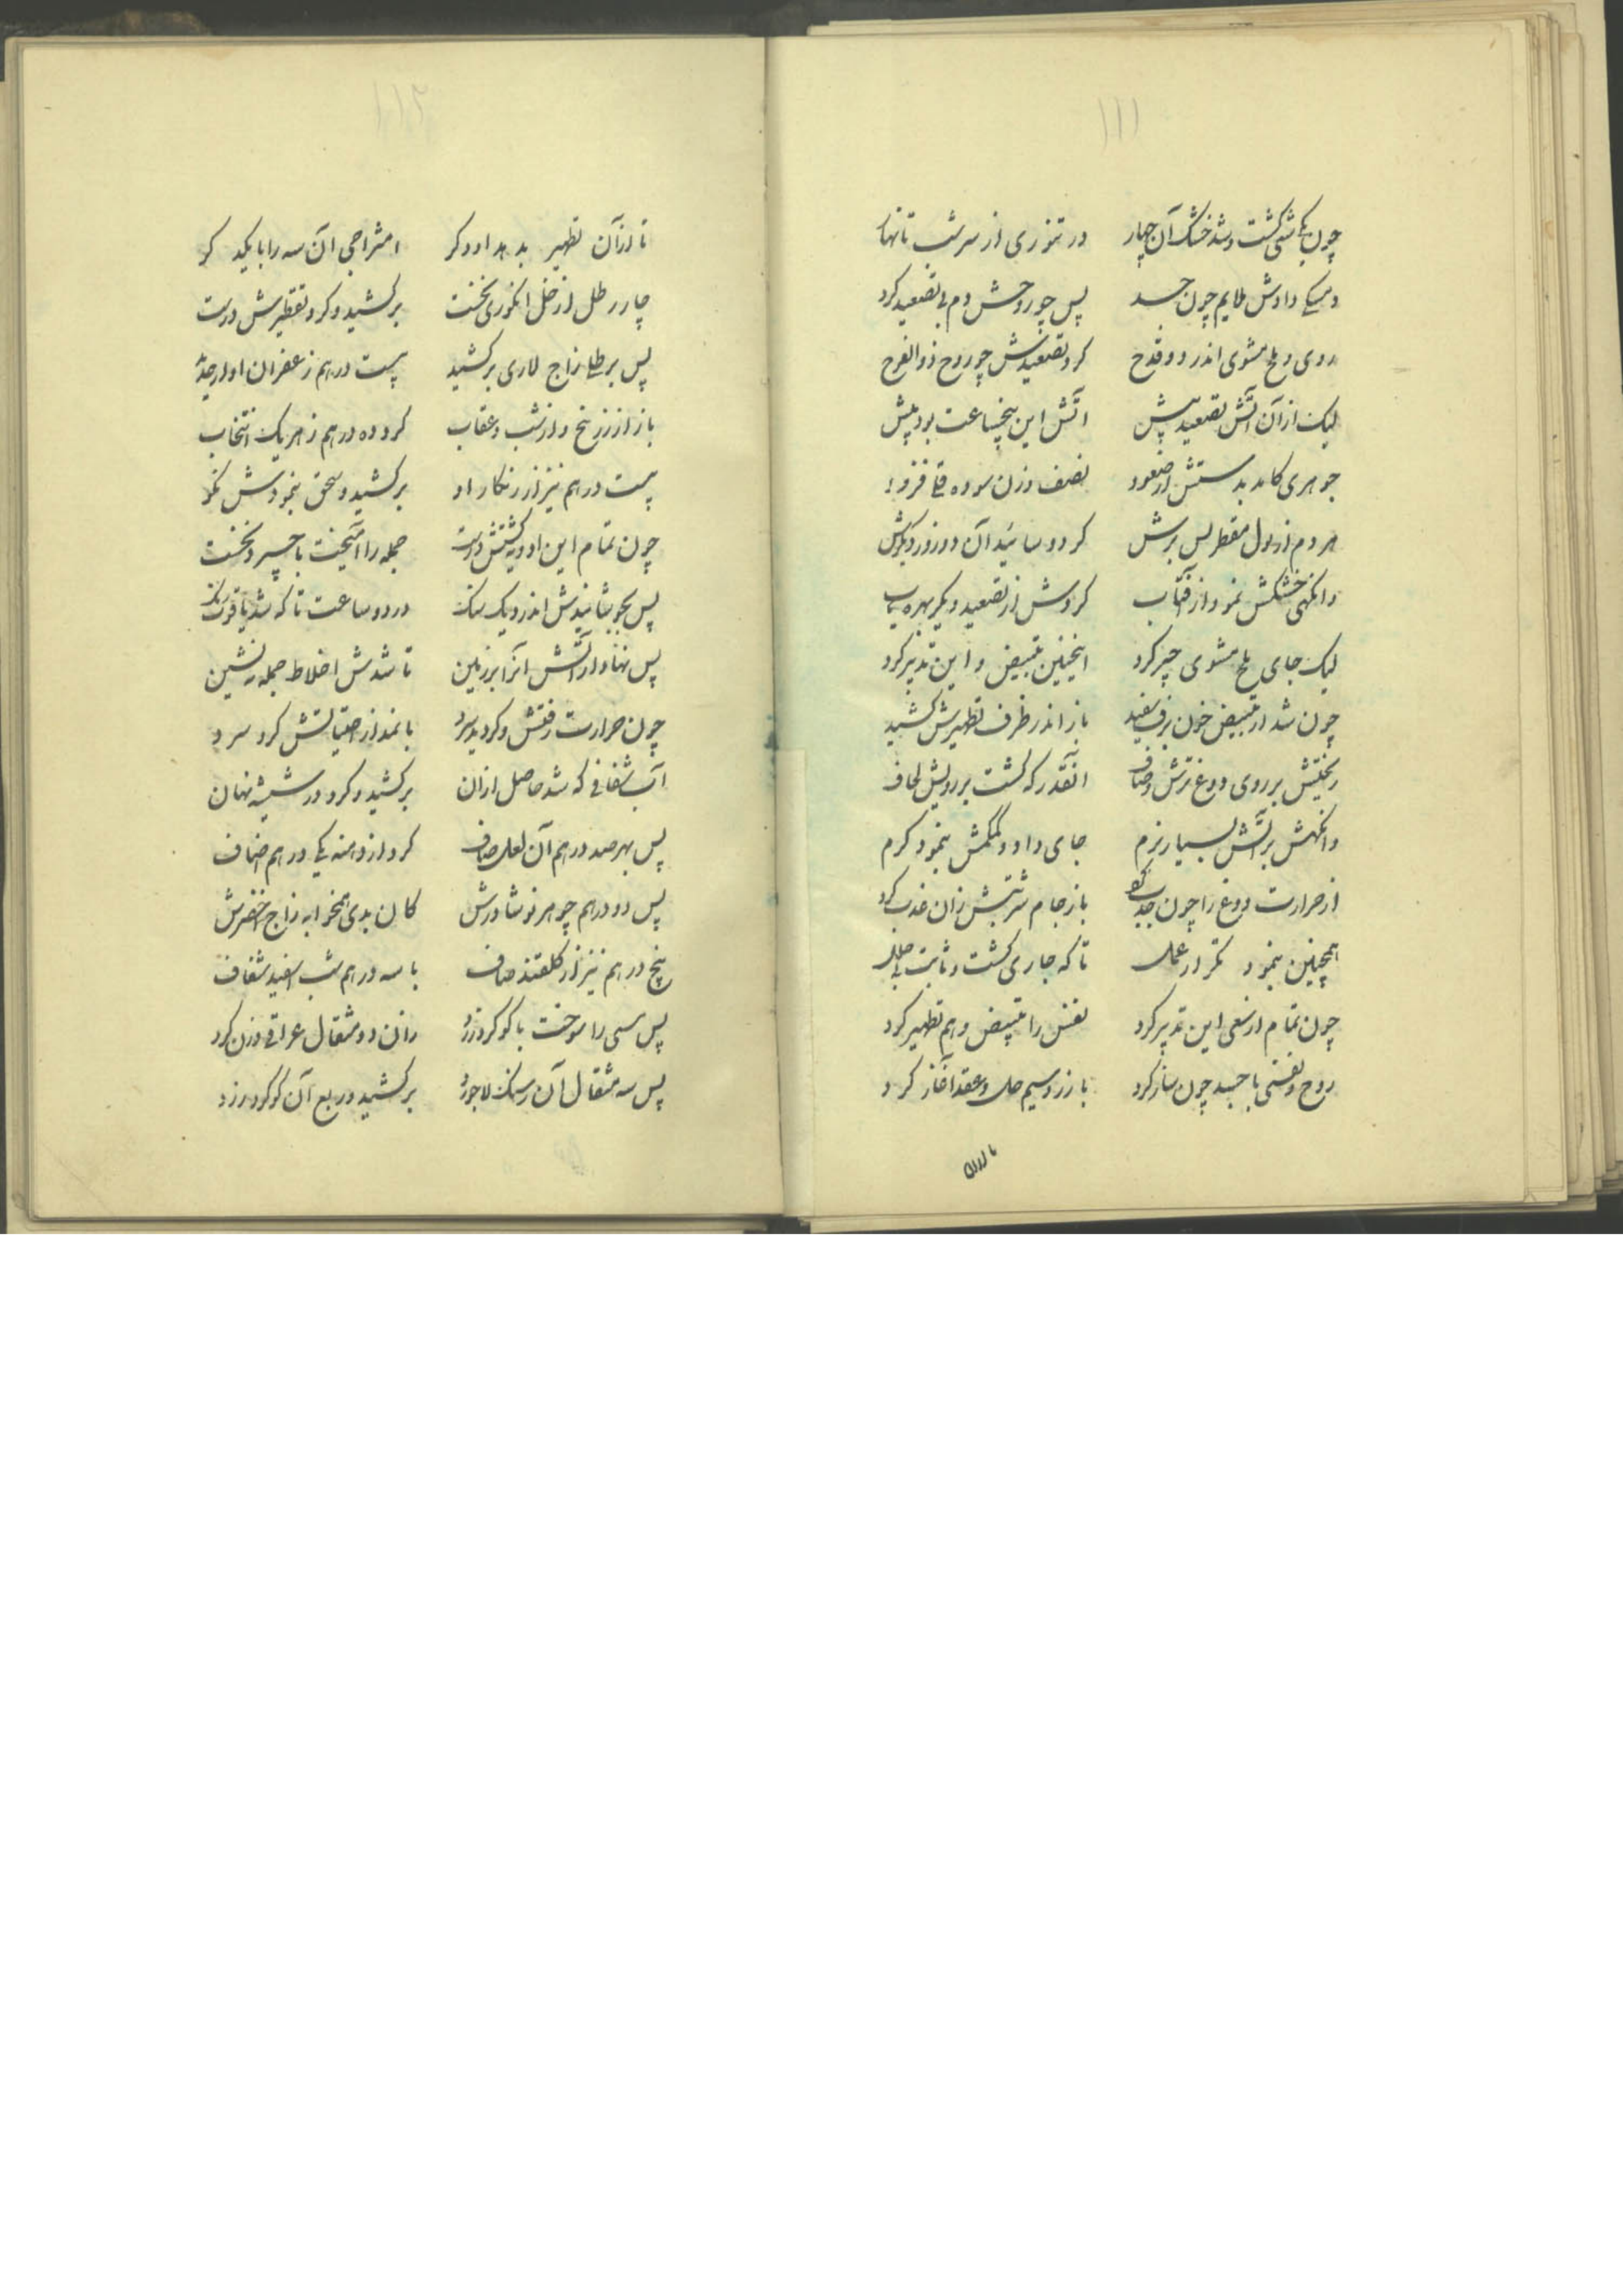 ۱۱۱
چون یکی شکی گشت و شد خشک آن چهار در تنوری از سر شب تا نهار
دادش ملایم چون جسد پس چو روحش دم تصعید کرد
روی و ملح مشوی اندر دو قدح کرد تصعیدش چو روح ذو الفرح
لیک از آن آتش تصعید پیش آتش این پنجساعت بود بیش
جوهری کامد بدستش از صعود نصف وزن سوده فزود
هر دم از بول مقطر بس برش کرد و سائید آن دو روز دیگرش
وانگهی خشکش نمود از آفتاب کردش از تصعید دیگر بهره یاب
لیک جای ملح مشوی جیر کرد اینچنین تبییض و این تدبیر کرد
چون شد از تبییض خون برف سفید باز اندر ظرف تطهیرش کشید
ریختش بر روی دوغ ترش و صاف آنقدر که گشت بر رویش لحاف
وانگهش بر آتش بسیار نرم جای داد و کمکمش بنمود گرم
از حرارت دوغ را چون جذب کرد باز جام شربتش زان عذب کرد
همچنین بنمود تکرار عمل تا که جاری گشت و ثابت بی خلل
چون تمام از سعی این تدبیر کرد نفس را تبییض و هم تطهیر کرد
روح و نفسی با جسد چون ساز کرد با زر و سیم حل و عقد آغاز کرد
تا از آن
۱۱۲
تا از آن تطهیر بدهد او دگر امتزاجی آن سه را با یکدگر
چار رطل از خل انگوری نخست برکشید و کرد تقطیرش درست
پس رطلی زاج لاری برکشید بیست درهم زعفران او را جدید
باز از زرنیخ و از شب و عقاب کرد ده درهم ز هر یک انتخاب
بیست درهم نیز از زنگار او برکشید و سحق بنمودش نکو
چون تمام این ادویه گشتش درست جمله را آمیخت با چیز نخست
پس بجوشانیدش اندر دیک سنک در دو ساعت تا که شد یاقوت رنک
پس نهاد از آتش آنرا بر زمین تا شدش اخلاط جمله ته نشین
چون حرارت رفتش و گردید سرد با نمد از صقیالتش کرد سرد
آب شفافی که شد حاصل از آن برکشید و کرد در شیشه نهان
پس بهر صد درهم آن لعل صاف کرد از دهنه یکی درهم اضاف
پس دو درهم جوهر نوشادرش کان بدی همخوابه زاج اخضرش
پنج درهم نیز از کلقند صاف با سه درهم شب سفید شفاف
پس مسی را سوخت با گوگرد زرد زان دو مثقال عراقی وزن کرد
پس سه مثقال آن سنک لاجورد برکشید و ربع آن گوگرد زرد